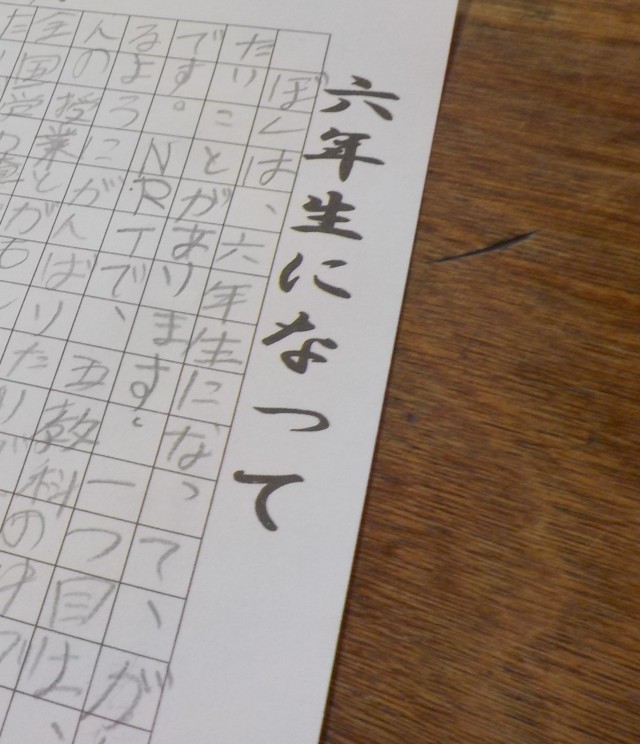 六年生になって
ぼくは、六年生になって、が
たいことがあります。一つ目は、
です。NRTで、五教科の
るようにがんばりた
んの授業とが
全国